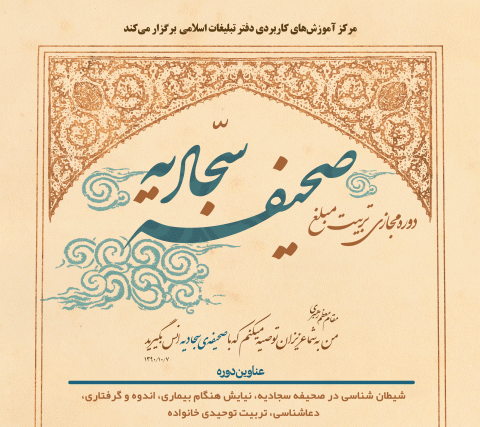 مرکز آموزش‌های کاربردی دفتر تبلیغات اسلامی برگزار می‌کند
صحیفه سجّادیه
دوره مجازی تربیت مبلغ
مقام معظم رهبری
من به شما عزیزان توصیه میکنم که با صحیفه‌ی سجادیه انس بگیرید
۱۳۹۰/۱۰/۷
عناوین دوره
شیطان شناسی در صحیفه سجادیه، نیایش هنگام بیماری، اندوه و گرفتاری،
دعاشناسی، تربیت توحیدی خانواده